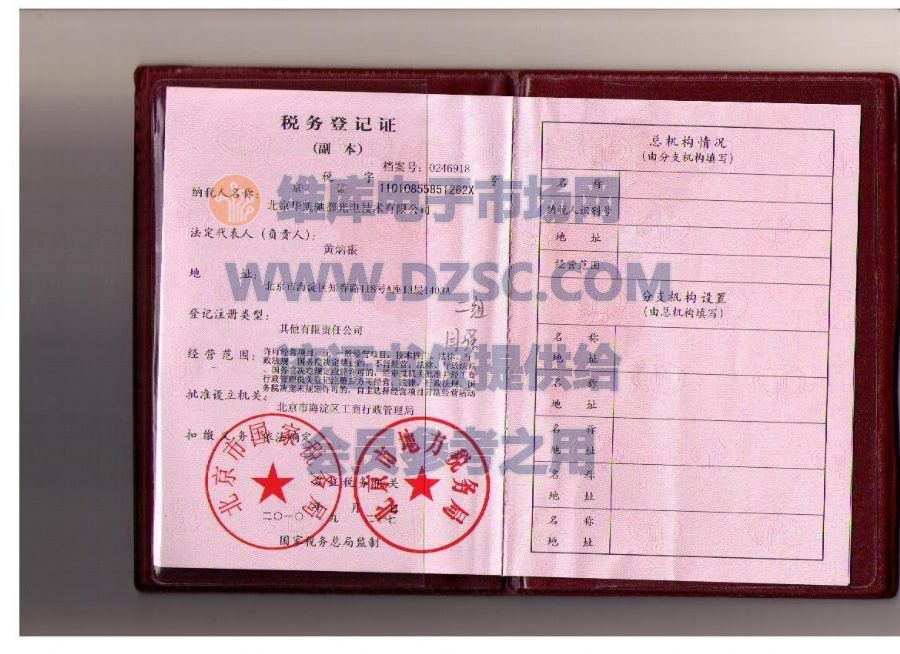 税务登记证
(副 本)
档案号: 0246918
京 税 证 字 11010855851262X 号
纳税人名称:
北京华凯驰都光电技术有限公司
法定代表人(负责人):
黄炳振
地 址:
北京市海淀区知春路118号A座13层1403A
登记注册类型:
其他有限责任公司
经营范围:
批准设立机关:
北京市海淀区工商行政管理局
扣缴义务: 依法确定
发证税务机关
二〇一〇 年 九 月 二十七
国家税务总局监制
北京市国家税务局
北京市地方税务局
一组
总机构情况
(由分支机构填写)
名 称
纳税人识别号
地 址
经营范围
分支机构设置
(由总机构填写)
名 称
地 址
名 称
地 址
名 称
地 址
名 称
地 址
名 称
地 址
维库电子市场网
WWW.DZSC.COM
该证书仅提供给
会员参考之用